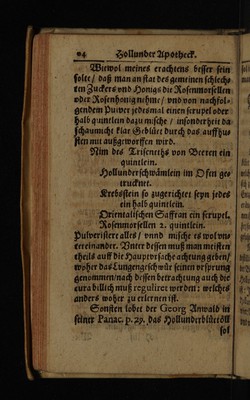 94 Hollunder Apotheck.
Wiewol meines erachtens besser sein
solte / daß man an stat des gemeinen schlech-
ten Zuckers vnd Honigs die Rosenmorsellen
oder Rosenhonig nehme / vnd von nachfol-
gendem Pulver jedesmal einen scrupel oder
halb quintlein dazu mische / insonderheit da
schaumicht klar Geblüet durch das auffhu-
sten mit außgeworffen wird.
Nim des Triseneths von Beeren ein
quintlein.
Hollunderschwämlein im Ofen ge-
trucknet.
Krebsstein so zugerichtet seyn jedes
ein halb quintlein.
Orientalischen Saffran ein scrupel.
Rosenmorsellen 2. quintlein.
Pulverisiere alles / vnnd mische es wol vn-
tereinander. Vnter dessen muß man meisten
theils auff die Hauptvrsache achtung geben /
woher das Lungengeschwär seinen vrsprung
genommen / nach dessen betrachtung auch die
cura billich muß reguliret werden: welches
anders woher zu erlernen ist.
Sonsten lobet der Georg Anwald in
seiner Panac. p. 29. das Hollunderblüeöll
sol